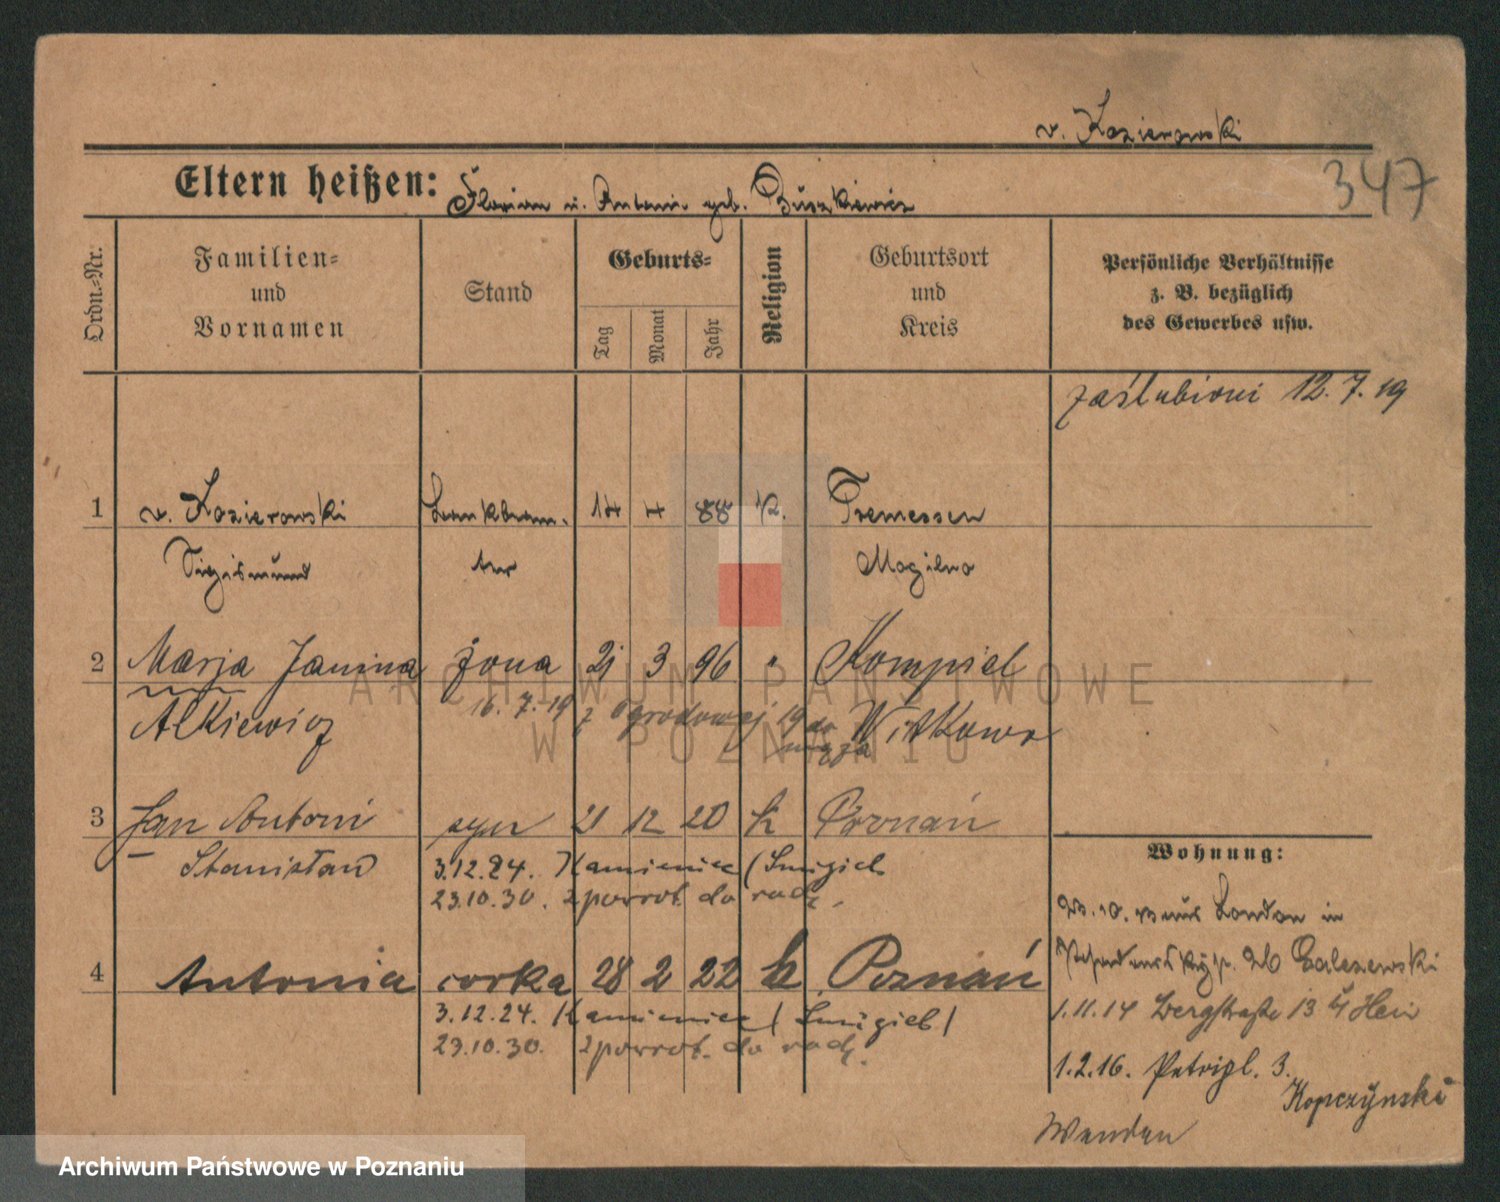 v. Kozierowski
347
Eltern heißen: Florian u. Antoni. geb. Buszkiewicz
Ordn.-Nr.
Familien- und Vornamen
Stand
Geburts-
Tag
Monat
Jahr
Religion
Geburtsort und Kreis
Persönliche Verhältnisse
z. B. bezüglich
des Gewerbes usw.
zaślubieni 12.7.19
1 v. Kozierowski 14 4 88 K. Tremessen
Sigismund Mogilno
2 Marja Janina żona 21 3 96 " Kompiel
16.7.19 z Ogrodowej 19 do męża
Alkiewicz Witkowo
3 Jan Antoni syn 21 12 20 k Poznań
Stanisław
3.12.24. Kamieniec (Śmigiel
23.10.30. zpowrot. do rodz.
4 Antonia corka 28 2 22 k Poznań
3.12.24. Kamieniec (Śmigiel)
23.10.30. zpowrot. do rodz.
Wohnung:
aus London in
Zaleszewski
1.11.14 Bergstraße 13
1.2.16. Petripl. 3.
Kopczyński
Wenden
ARCHIWUM PAŃSTWOWE
W POZNANIU
Archiwum Państwowe w Poznaniu